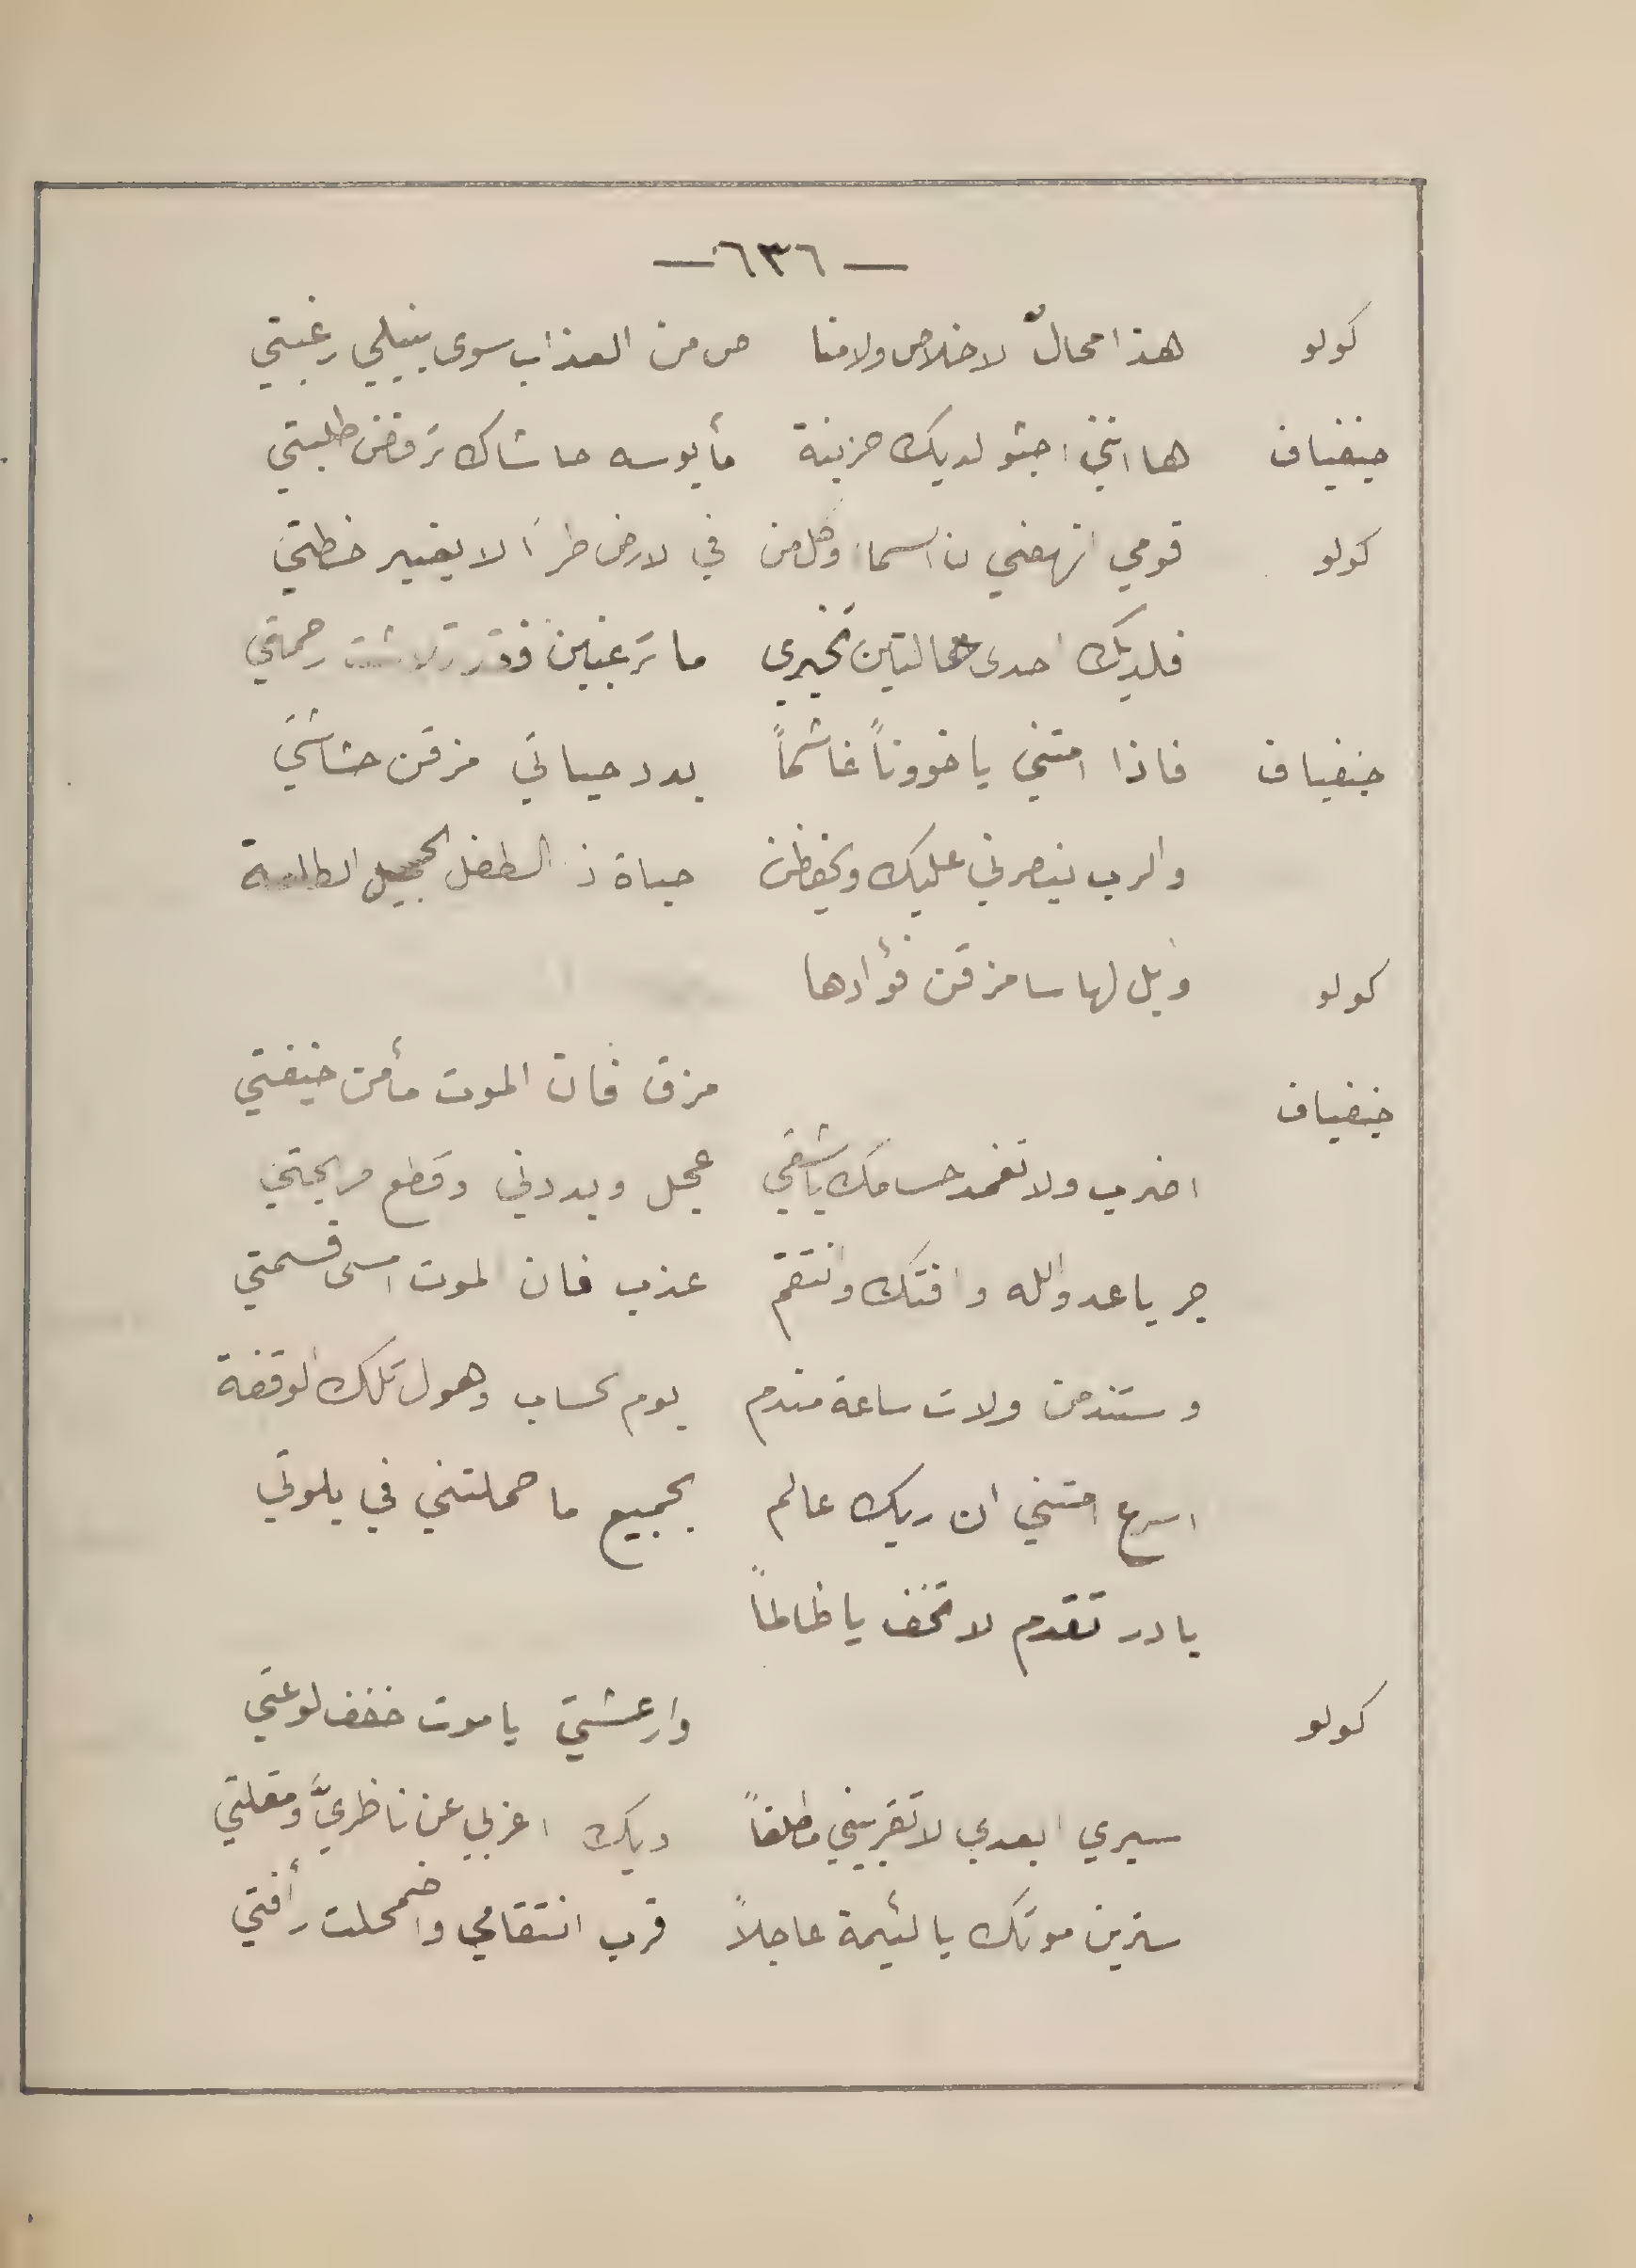 — ٦٣٦ —
كولو هذا محالٌ لا خلاص ولا منا ص من العذاب سوى بنيلي رغبتي
جنفياف ها انني اجثو لديك حزينة مأيوسه حاشاك ترفض طلبتي
كولو قومي انهضي ان السما وكل من في لارض طراً لا يغير خطتي
فلديك احدى حالتين تخيري ما ترغبين فقد تلاشت رحمتي
جنفياف فاذا امتني يا خووناً غاشماً بدد حياتي مزقن حشاشتي
والرب ينصرني عليك ويحفظن حياة ذا الطفل الجميل الطلعة
كولو ويل لها سامزقن فؤادها
جنفياف مزق فان الموت مأمن خيفتي
اضرب ولا تغمد حسامك يا شقي عجل وبددني وقطع مهجتي
جر يا عدو الله وافتك وانتقم عذب فان الموت امسى قسمتي
وستندمن ولات ساعة مندم يوم لحساب وهول تلك الوقفة
اسرع امتني ان ربك عالم بجميع ما حملتني في بلوتي
بادر تقدم لا تخف يا ظالماً
كولو وارعشتي يا موت خفف لوعتي
سيري ابعدي لا تقربيني مطلقاً ويك اغربي عن ناظريَّ ومقلتي
سترين موتك يا لئيمة عاجلاً قرب انتقامي واضمحلت رأفتي